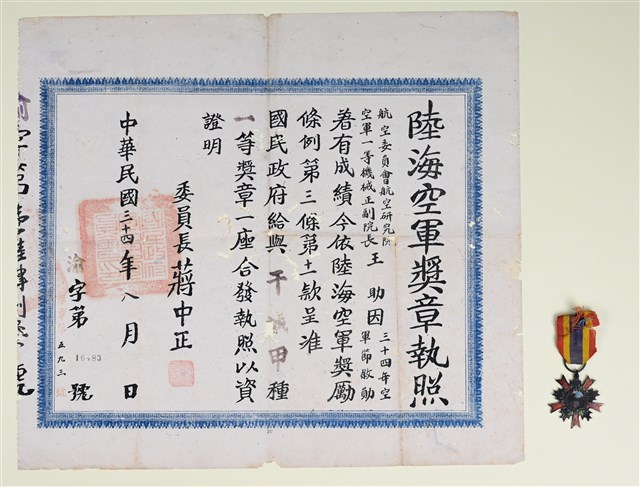 陸海空軍獎章執照
航空委員會航空研究院
空軍一等機械正副院長
王助因
三十四年空
軍節敘勳
著有成績今依陸海空軍獎勵
條例第三條第十一款呈准
國民政府給與干城甲種
一等獎章一座合發執照以資
證明
委員長蔣中正
中華民國三十四年八月日
渝字第
16483
號
五九三